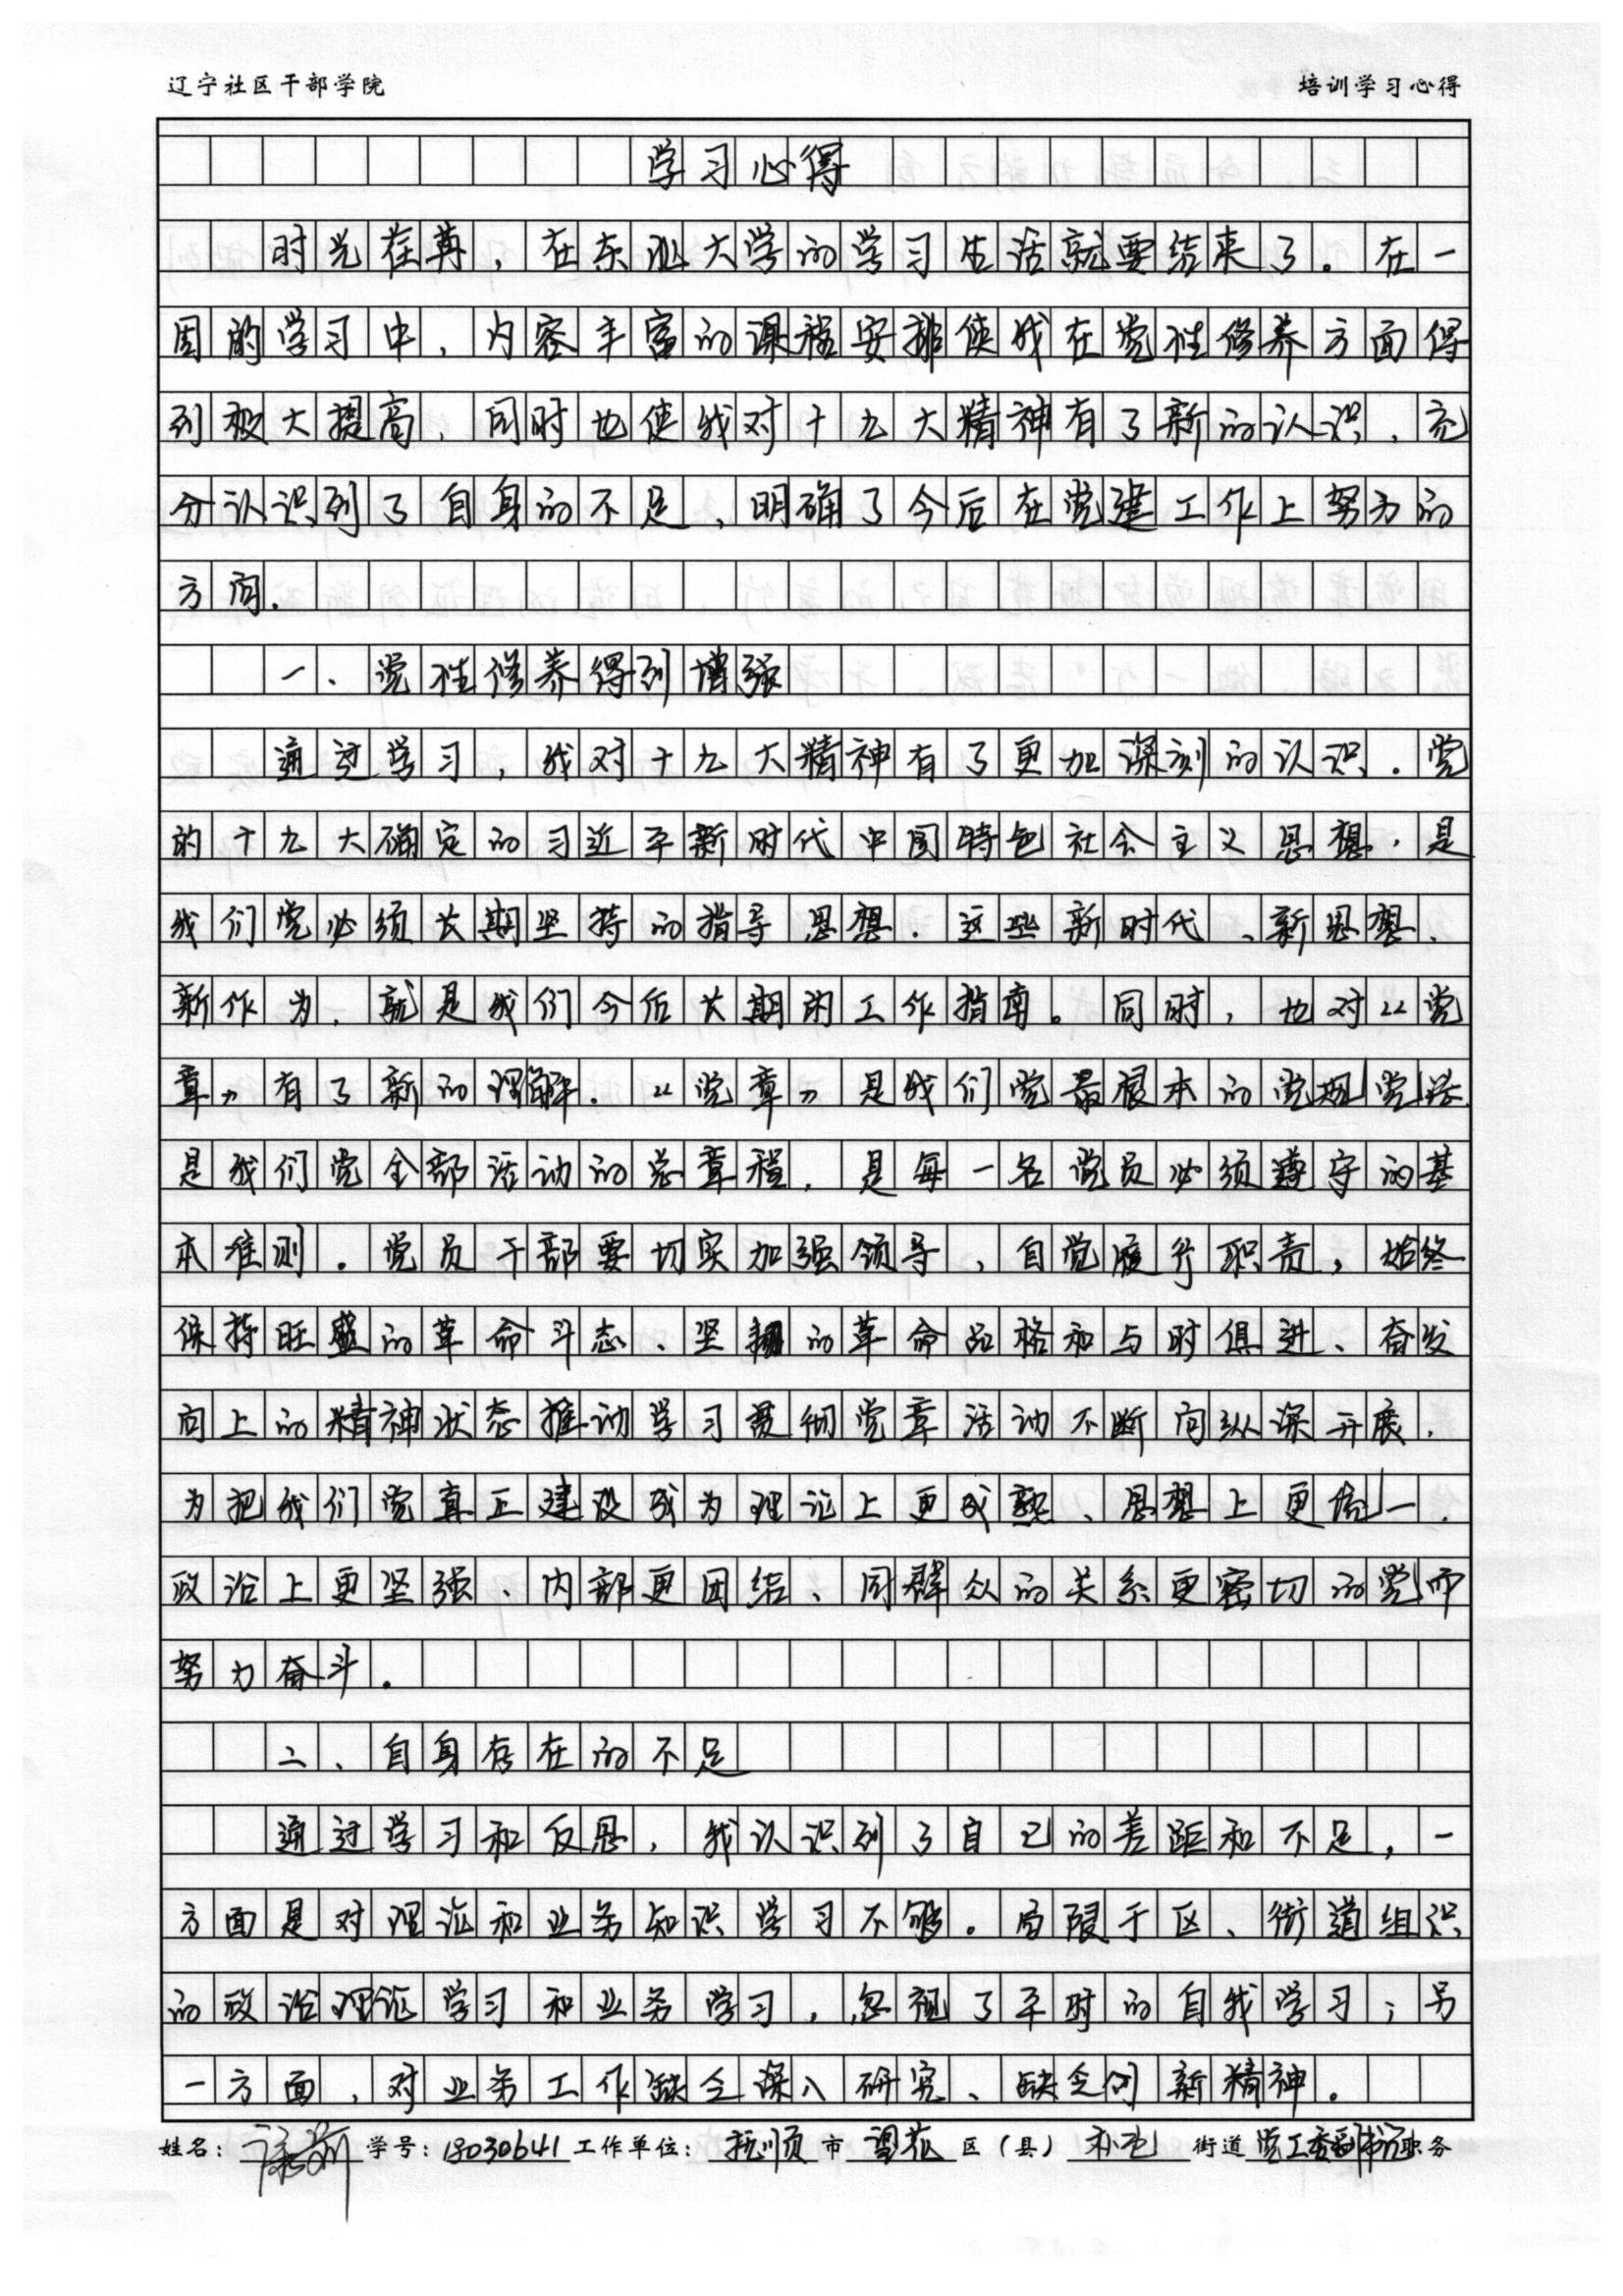 辽宁社区干部学院 培训学习心得
学习心得
时光荏苒，在东北大学的学习生活就要结束了。在一
周的学习中，内容丰富的课程安排使我在党性修养方面得
到极大提高，同时也使我对十九大精神有了新的认识，充
分认识到了自身的不足，明确了今后在党建工作上努力的
方向.
一、党性修养得到增强
通过学习，我对十九大精神有了更加深刻的认识。党
的十九大确定的习近平新时代中国特色社会主义思想，是
我们党必须长期坚持的指导思想。这些新时代、新思想、
新作为，就是我们今后长期的工作指南。同时，也对《党
章》有了新的理解.《党章》是我们党最根本的党规党法.
是我们党全部活动的总章程，是每一名党员必须遵守的基
本准则。党员干部要切实加强领导，自觉履行职责，始终
保持旺盛的革命斗志、坚韧的革命品格和与时俱进、奋发
向上的精神状态推动学习贯彻党章活动不断向纵深开展，
为把我们党真正建设成为理论上更成熟、思想上更统一
政治上更坚强 内部更团结、同群众的关系更密切的党而
努力奋斗。
二、自身存在的不足
通过学习和反思，我认识到了自己的差距和不足，一
方面是对理论和业务知识学习不够。局限于区、街道组识
的政治理论学习和业务学习，忽视了平时的自我学习；另
一方面，对业务工作缺乏深入研究、缺乏创新精神。
姓名： 学号：18030641 工作单位：抚顺 市 望花 区（县） 朴屯 街道 党工委副书记 职务